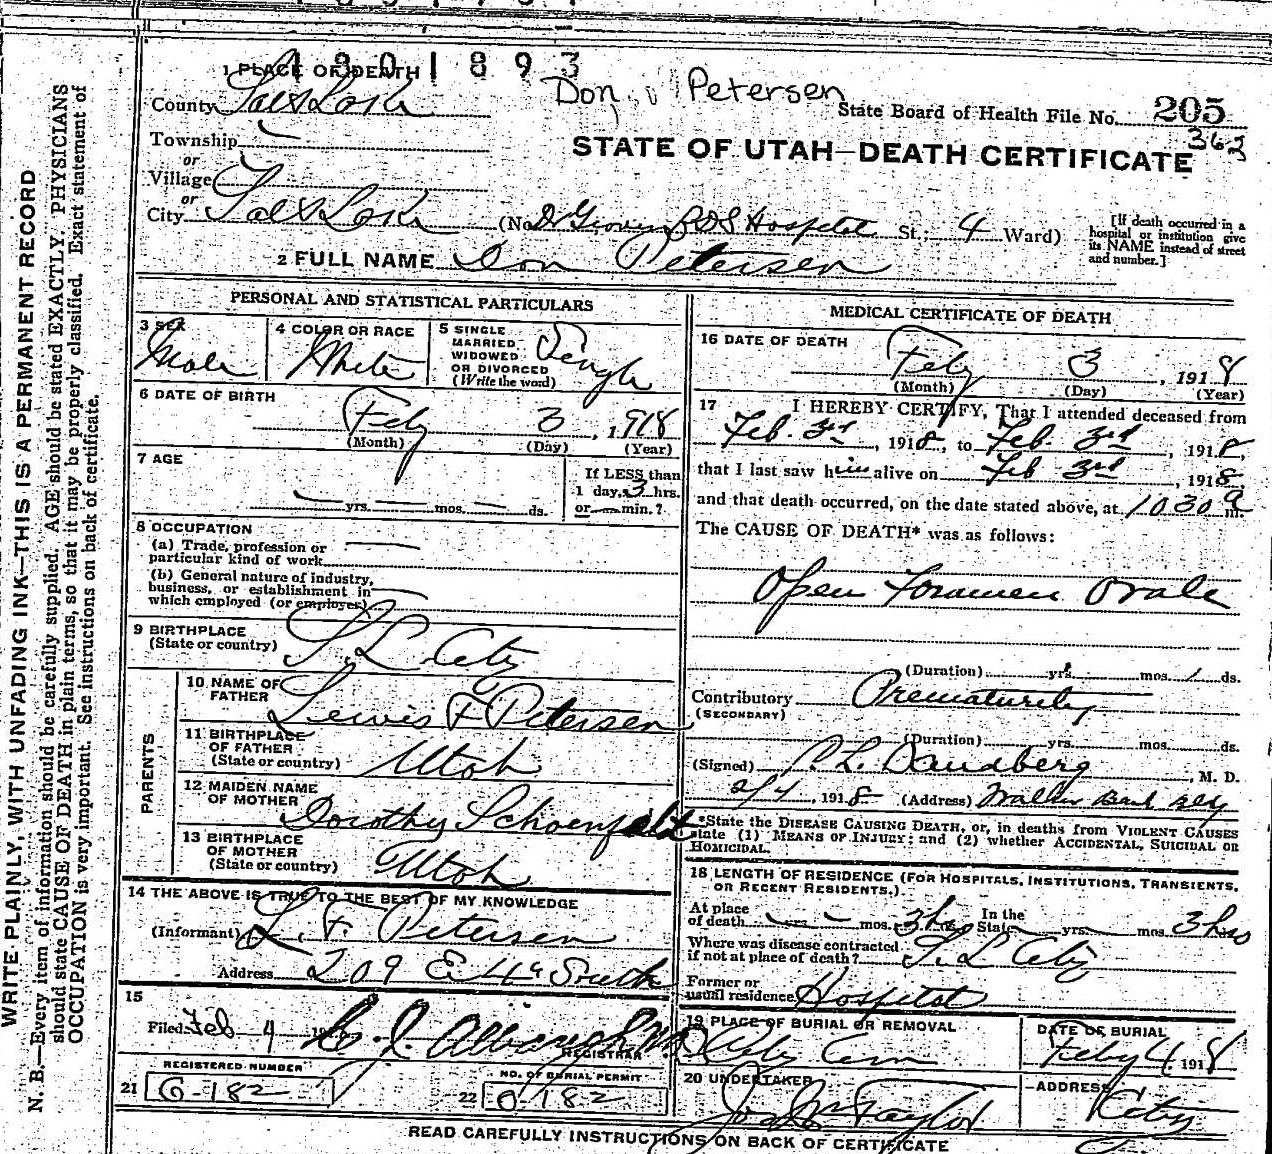 1801893
1 PLACE OF DEATH
Don Petersen
County Salt Lake
State Board of Health File No. 205
362
Township
or
STATE OF UTAH—DEATH CERTIFICATE
Village
or
City Salt Lake (No. L D S Hospital St.; 4 Ward)
[If death occurred in a hospital or institution give its NAME instead of street and number.]
2 FULL NAME Don Petersen
PERSONAL AND STATISTICAL PARTICULARS
3 SEX Male
4 COLOR OR RACE White
5 SINGLE MARRIED, WIDOWED OR DIVORCED (Write the word) Single
6 DATE OF BIRTH
Feby 3, 1918
(Month) (Day) (Year)
7 AGE
yrs. mos. ds.
If LESS than 1 day, 3 hrs. or min.?
8 OCCUPATION
(a) Trade, profession or particular kind of work
(b) General nature of industry, business, or establishment in which employed (or employer)
9 BIRTHPLACE (State or country) S. L. City
PARENTS
10 NAME OF FATHER Lewis F Petersen
11 BIRTHPLACE OF FATHER (State or country) Utah
12 MAIDEN NAME OF MOTHER Dorothy Schoenfeldt
13 BIRTHPLACE OF MOTHER (State or country) Utah
14 THE ABOVE IS TRUE TO THE BEST OF MY KNOWLEDGE
(Informant) L. F. Petersen
Address 209 E 4th South
15
Filed Feb 4 191
REGISTRAR
REGISTERED NUMBER
NO. OF BURIAL PERMIT
21 G-182
22 182
MEDICAL CERTIFICATE OF DEATH
16 DATE OF DEATH
Feby 3, 1918
(Month) (Day) (Year)
17 I HEREBY CERTIFY, That I attended deceased from
Feb. 3rd, 1918, to Feb. 3rd, 1918,
that I last saw him alive on Feb 3rd, 1918,
and that death occurred, on the date stated above, at 1030 a m.
The CAUSE OF DEATH* was as follows:
Open Foramen Ovale
(Duration) yrs. mos. 1 ds.
Contributory Prematurely
(SECONDARY)
(Duration) yrs. mos. ds.
(Signed) Sandberg, M. D.
2/4, 1918 (Address) Walker Bank Bldg
*State the DISEASE CAUSING DEATH, or, in deaths from VIOLENT CAUSES
state (1) MEANS OF INJURY; and (2) whether ACCIDENTAL, SUICIDAL OR
HOMICIDAL.
18 LENGTH OF RESIDENCE (FOR HOSPITALS, INSTITUTIONS, TRANSIENTS,
OR RECENT RESIDENTS.)
At place of death yrs. mos. 3 hrs In the State yrs. mos. 3 hrs
Where was disease contracted if not at place of death? S. L City
Former or usual residence Hospital
19 PLACE OF BURIAL OR REMOVAL
City Cem
DATE OF BURIAL
Feby 4 1918
20 UNDERTAKER
Taylor
ADDRESS
City
READ CAREFULLY INSTRUCTIONS ON BACK OF CERTIFICATE
WRITE PLAINLY, WITH UNFADING INK—THIS IS A PERMANENT RECORD
N. B.—Every item of information should be carefully supplied. AGE should be stated EXACTLY. PHYSICIANS
should state CAUSE OF DEATH in plain terms, so that it may be properly classified. Exact statement of
OCCUPATION is very important. See instructions on back of certificate.